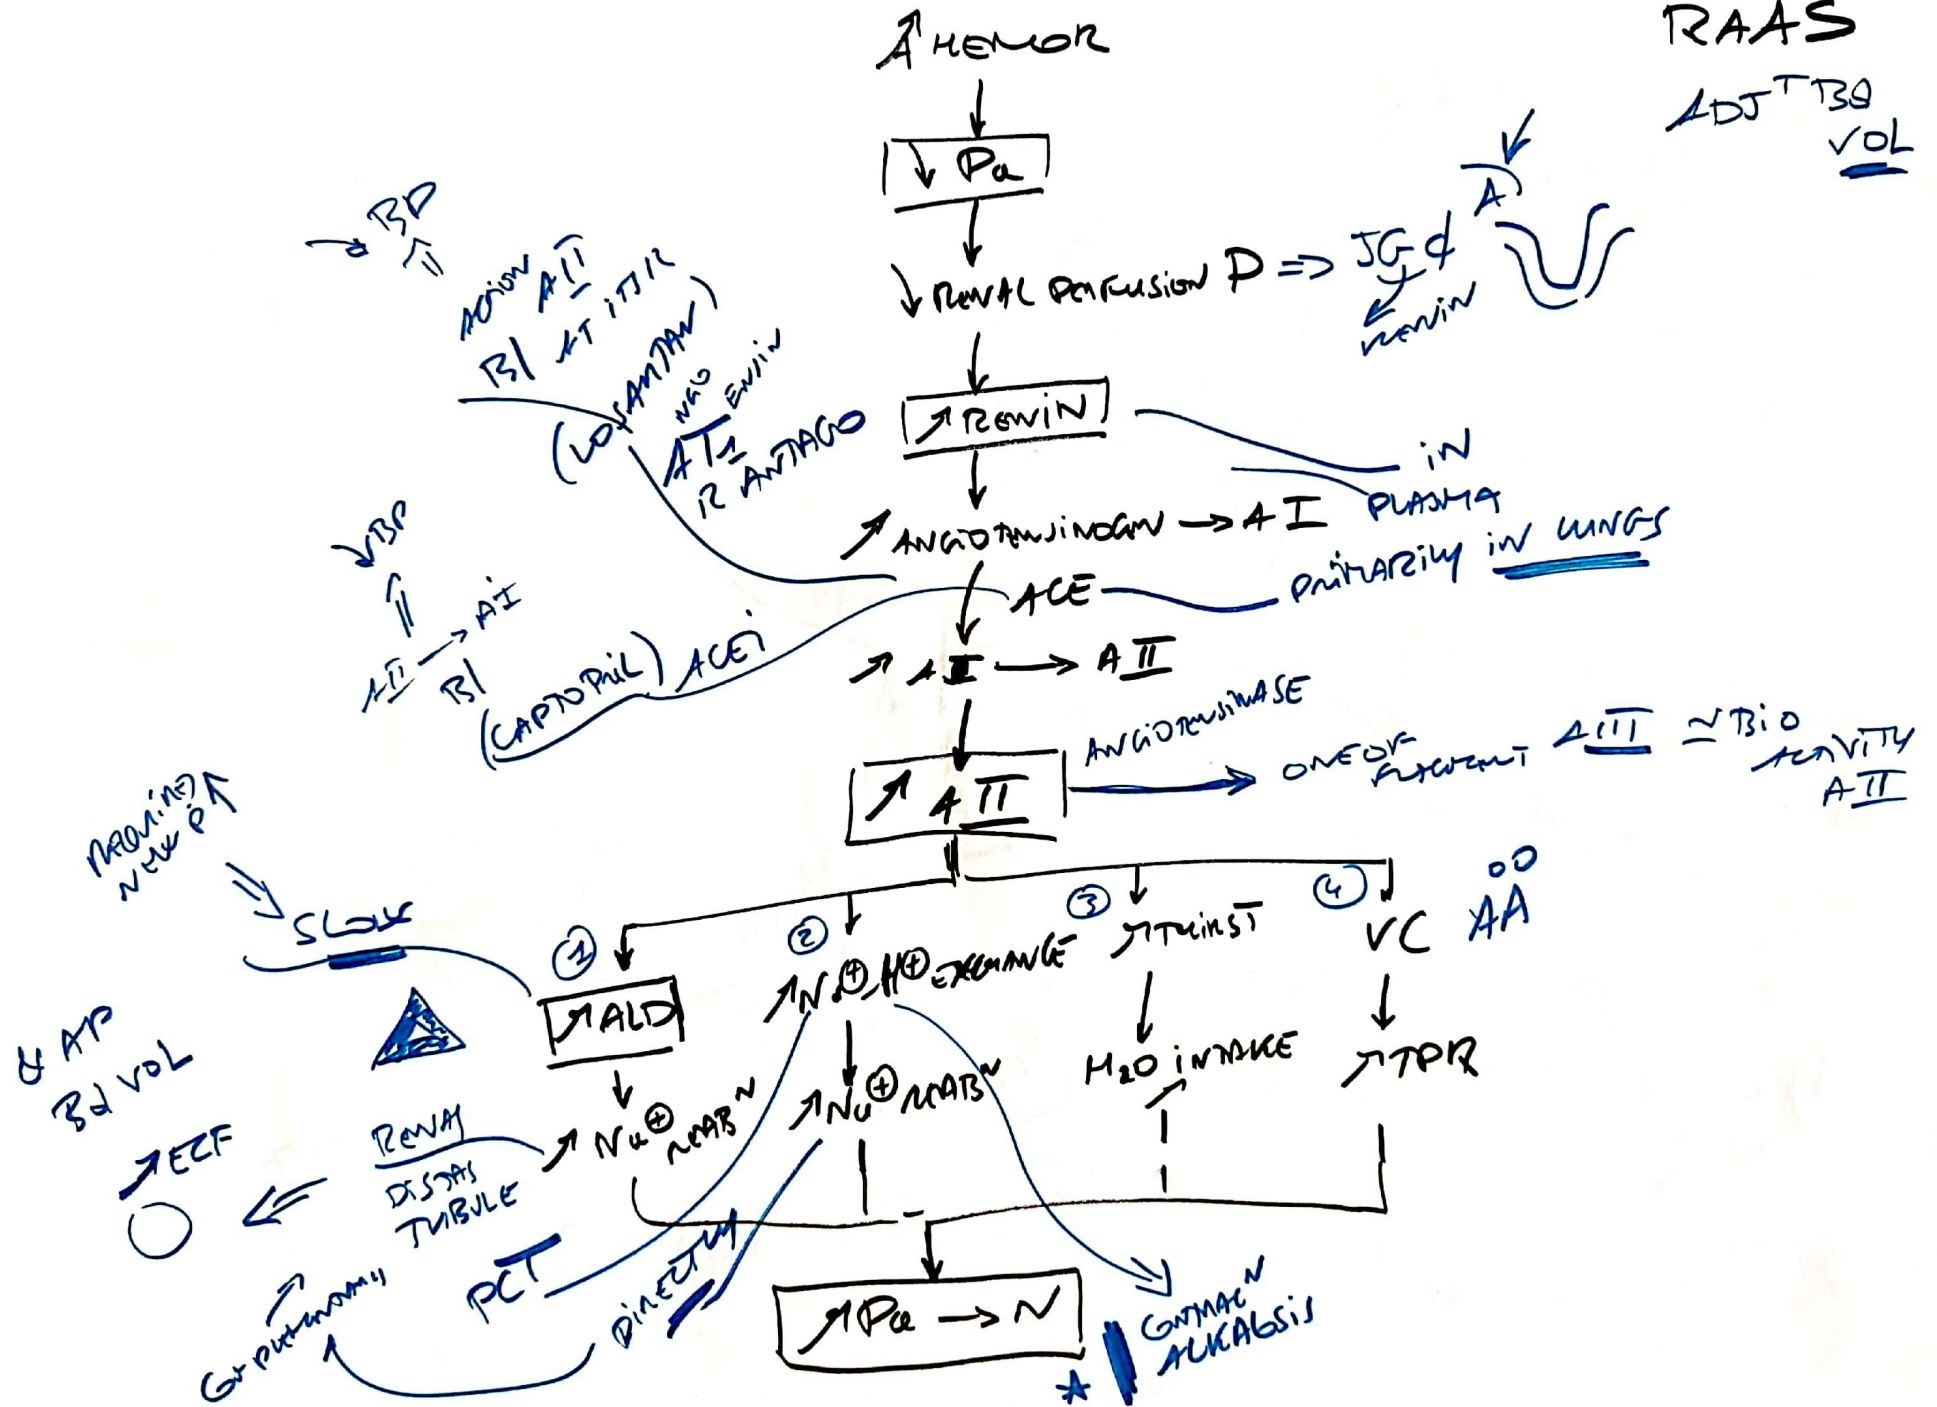 RAAS
ADJT BD
VOL
↗ HEMOR
↓ Pa
↓ RENAL PERFUSION P ⇒ JG ¢
RENIN
A
↗ RENIN
IN
PLASMA
↗ ANGIOTENSINOGEN → A I
ACE
PRIMARILY IN LUNGS
↗ A I → A II
↗ A II
ANGIOTENSINASE
ONE OF
FRAGMENT
A III ≃ BIO
ACTIVITY
A II
BP
ACTION
A II
B/ AT
(LOSARTAN)
AT1
R ANTAGO
↓BP
A II → A I
B/
(CAPTOPRIL) ACEi
REQUIRES
NEW P ↑
SLOW
① ↗ ALD
↗ Na⊕ REABN
RENAL
DISTAL
TUBULE
& AP
Bd VOL
↗ ECF
② ↗ Na⊕ H⊕ EXCHANGE
↗ Na⊕ REABN
PCT
DIRECTLY
③ ↗ THIRST
H2O INTAKE
④ VC
AA
↗ TPR
↗ Pa → N
CONTRACN
ALKALOSIS